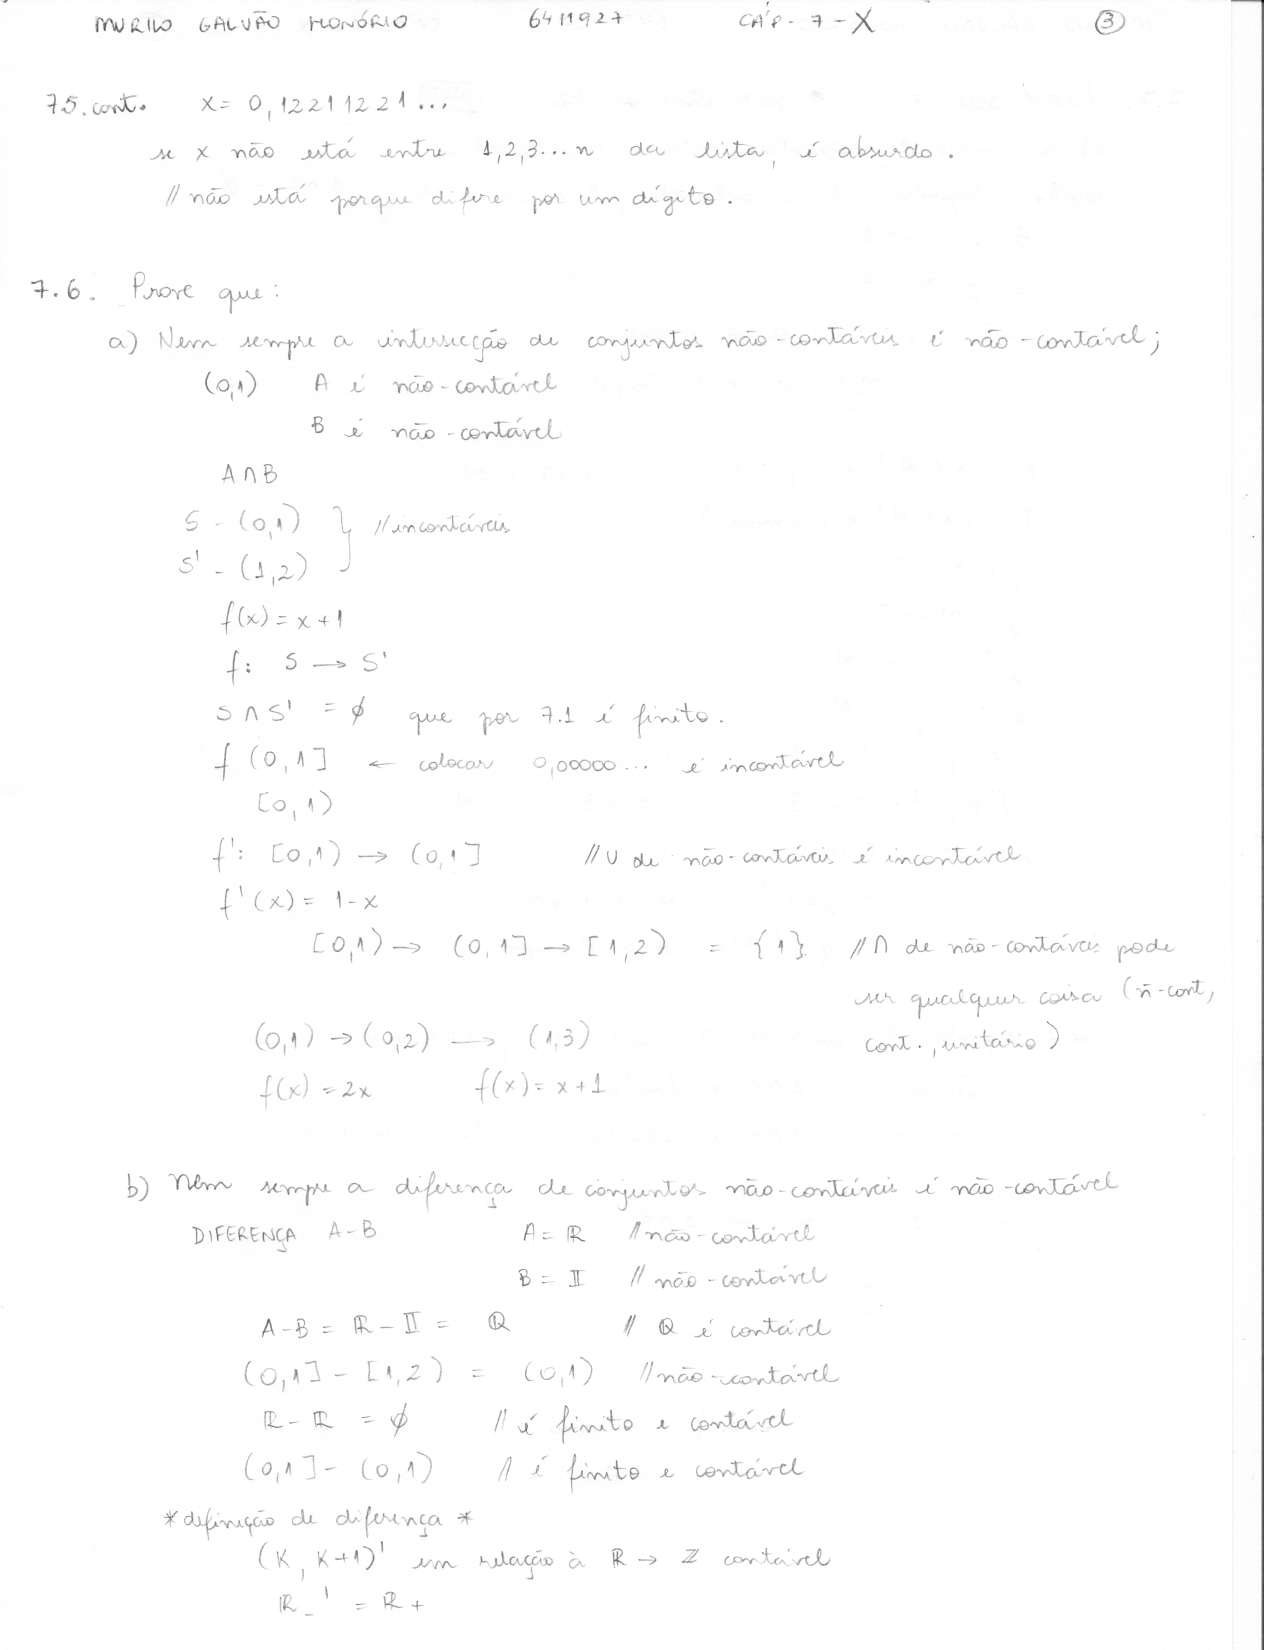 MURILO GALVÃO HONÓRIO 6411927 CÁP. 7 - X ③
7.5. cont. x = 0,12211221...
se x não está entre 1,2,3...n da lista, é absurdo.
// não está porque difere por um dígito.
7.6. Prove que:
a) Nem sempre a intersecção de conjuntos não-contáveis é não-contável;
(0,1) A é não-contável
B é não-contável
A ∩ B
S - (0,1) } // incontáveis
S' - (1,2)
f(x) = x + 1
f: S → S'
S ∩ S' = ∅ que por 7.1 é finito.
f (0,1] ← colocar 0,00000... é incontável
[0,1)
f': [0,1) → (0,1] // ∪ de não-contáveis é incontável
f'(x) = 1 - x
[0,1) → (0,1] → [1,2) = {1} // ∩ de não-contáveis pode
ser qualquer coisa (ñ-cont,
(0,1) → (0,2) → (1,3) cont., unitário)
f(x) = 2x f(x) = x + 1
b) Nem sempre a diferença de conjuntos não-contáveis é não-contável
DIFERENÇA A - B A = ℝ // não-contável
B = 𝕀 // não-contável
A - B = ℝ - 𝕀 = ℚ // ℚ é contável
(0,1] - [1,2) = (0,1) // não-contável
ℝ - ℝ = ∅ // é finito e contável
(0,1] - (0,1) // é finito e contável
* definição de diferença *
(K, K+1)' em relação à ℝ → ℤ contável
ℝ_' = ℝ+